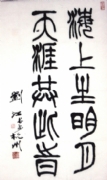 海上生明月
天涯共此时
劉江書於杭州